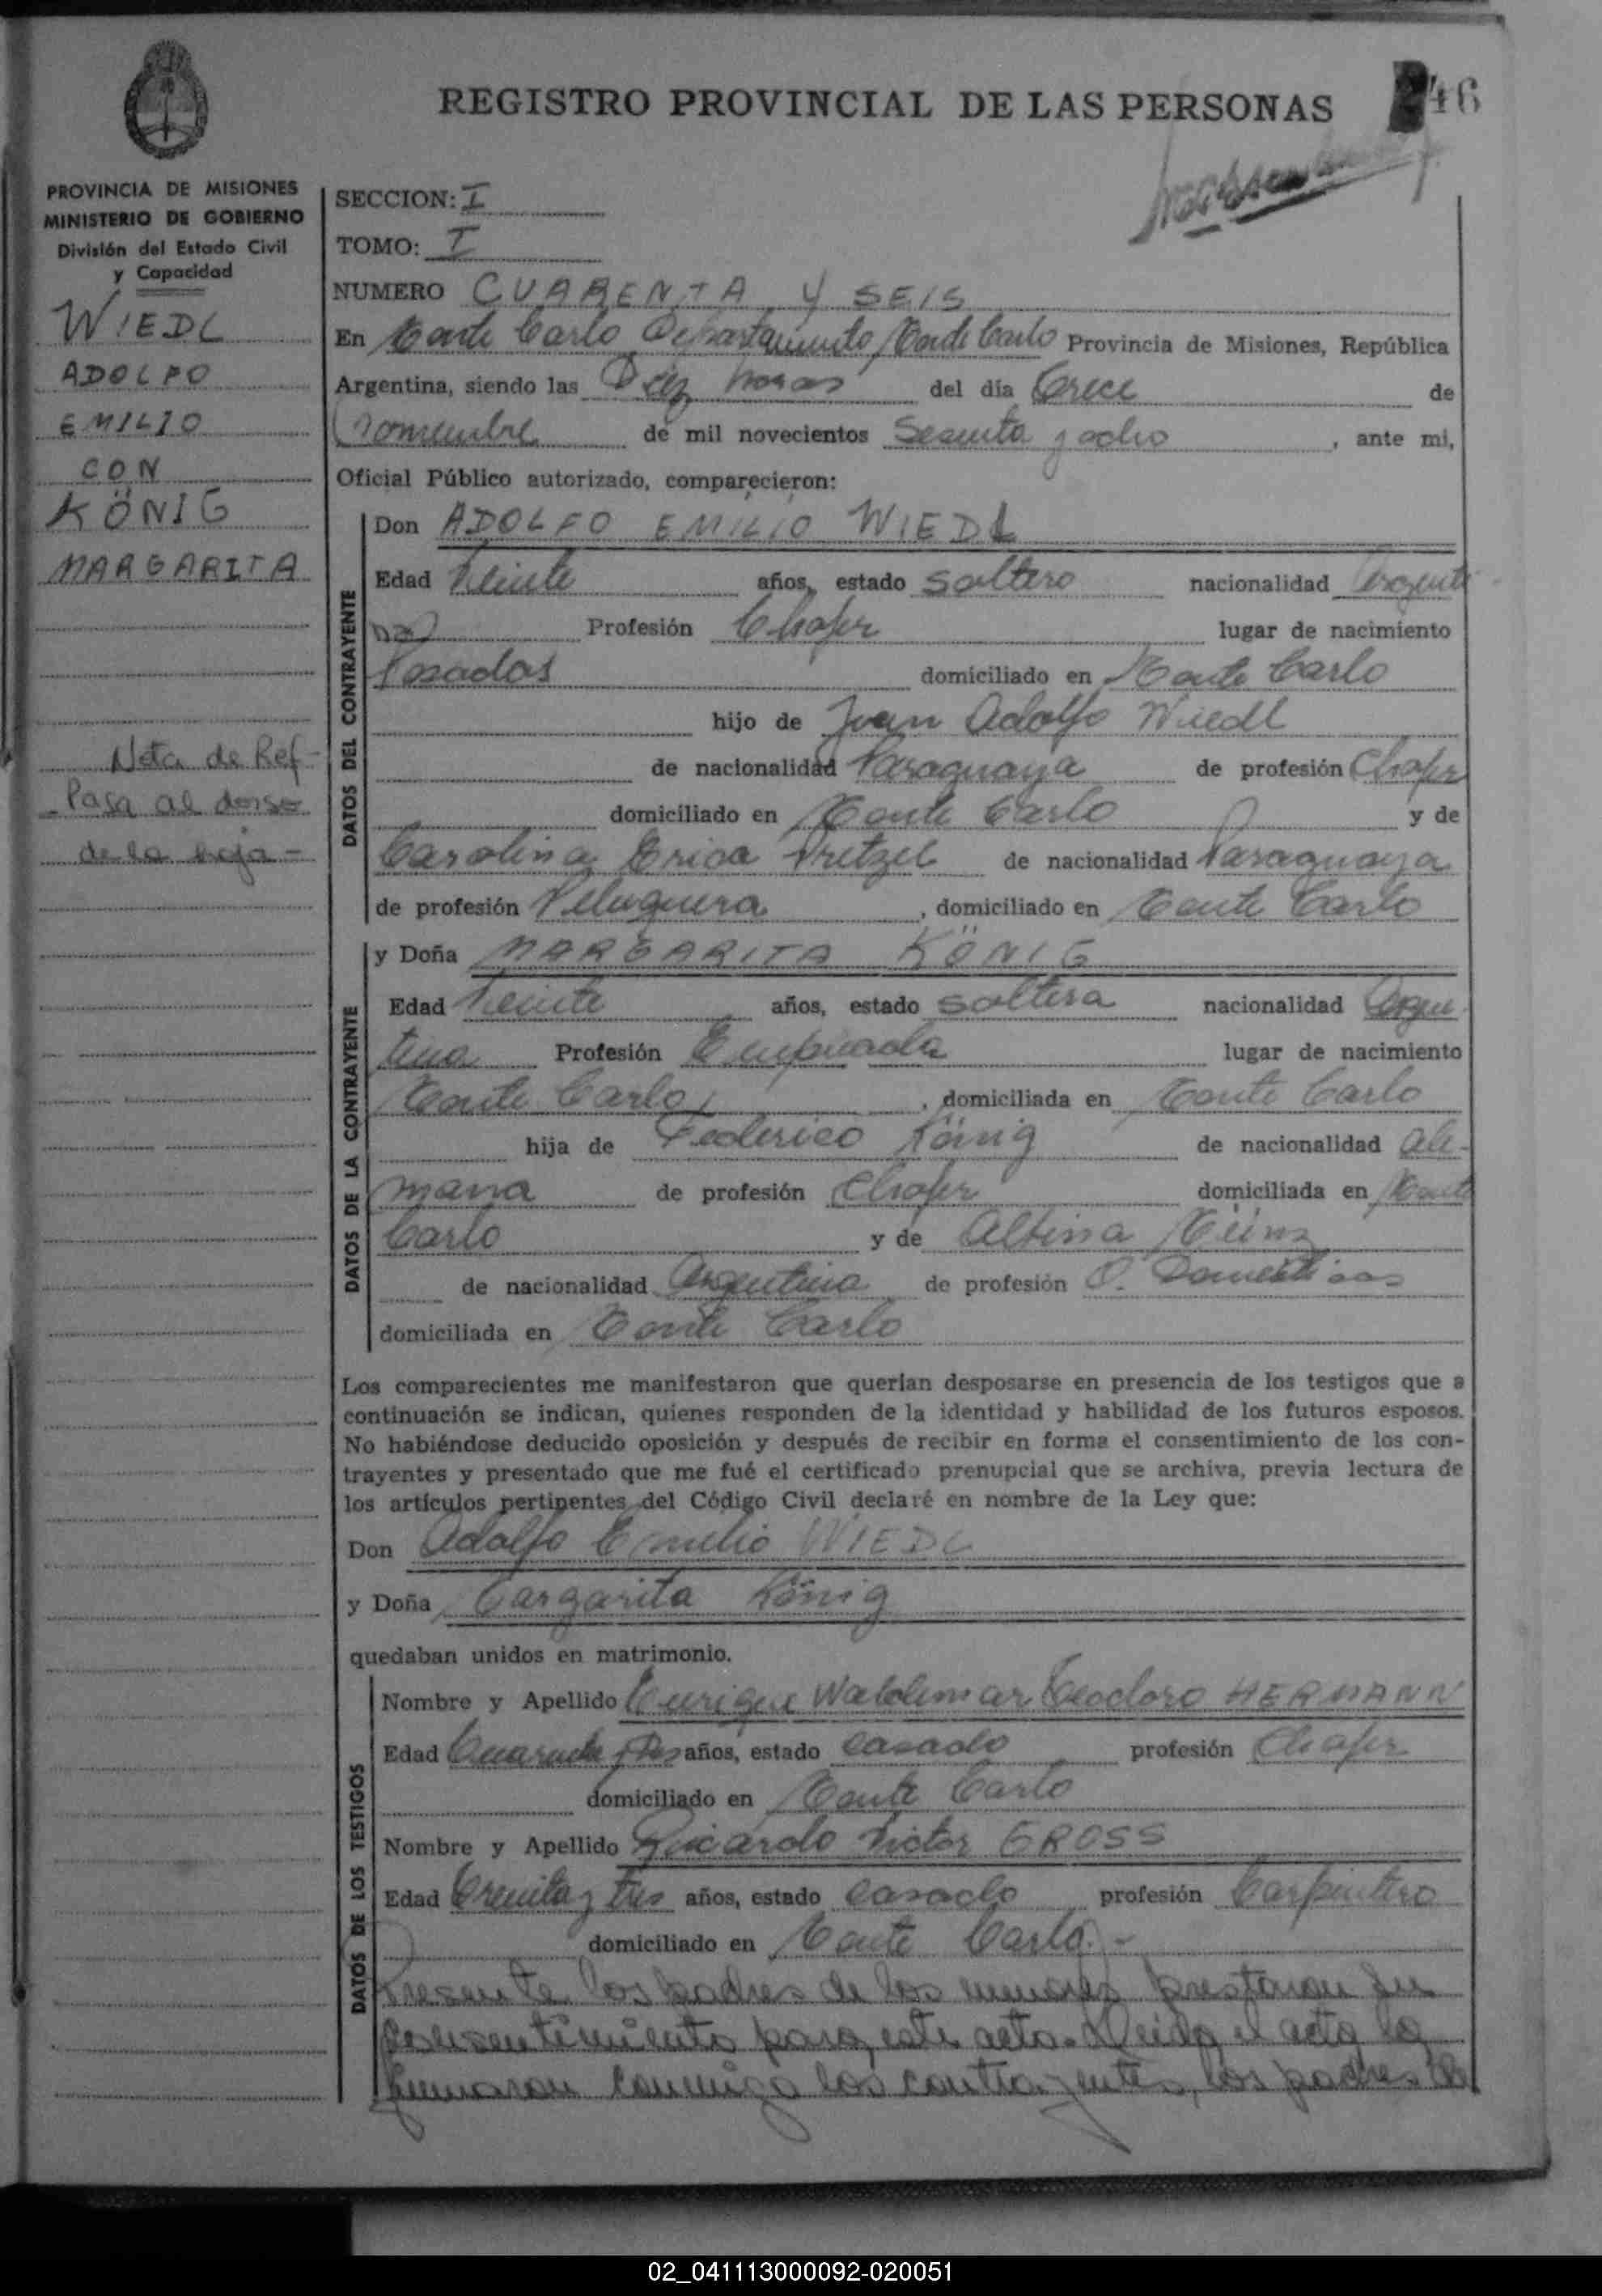 REGISTRO PROVINCIAL DE LAS PERSONAS
46
PROVINCIA DE MISIONES
MINISTERIO DE GOBIERNO
División del Estado Civil
y Capacidad
WIEDL
ADOLFO
EMILIO
CON
KÖNIG
MARGARITA
Nota de Ref-
Pasa al dorso
de la hoja-
SECCION: I
TOMO: I
NUMERO CUARENTA Y SEIS
En Monte Carlo Departamento Monte Carlo Provincia de Misiones, República
Argentina, siendo las Diez horas del día Trece de
noviembre de mil novecientos Sesenta y ocho, ante mi,
Oficial Público autorizado, comparecieron:
DATOS DEL CONTRAYENTE
Don ADOLFO EMILIO WIEDL
Edad Veinte años, estado soltero nacionalidad Argenti
na Profesión Chofer lugar de nacimiento
Posadas domiciliado en Monte Carlo
hijo de Juan Adolfo Wiedl
de nacionalidad Paraguaya de profesión Chofer
domiciliado en Monte Carlo y de
Carolina Erica Pretzel de nacionalidad Paraguaya
de profesión Peluquera, domiciliado en Monte Carlo
DATOS DE LA CONTRAYENTE
y Doña MARGARITA KÖNIG
Edad Veinte años, estado soltera nacionalidad Argen
tina Profesión Empleada lugar de nacimiento
Monte Carlo, domiciliada en Monte Carlo
hija de Federico König de nacionalidad Ale-
mana de profesión Chofer domiciliada en Monte
Carlo y de Albina
de nacionalidad Argentina de profesión Q. Domésticos
domiciliada en Monte Carlo
Los comparecientes me manifestaron que querían desposarse en presencia de los testigos que a
continuación se indican, quienes responden de la identidad y habilidad de los futuros esposos.
No habiéndose deducido oposición y después de recibir en forma el consentimiento de los con-
trayentes y presentado que me fué el certificado prenupcial que se archiva, previa lectura de
los artículos pertinentes del Código Civil declaré en nombre de la Ley que:
Don Adolfo Emilio WIEDL
y Doña Margarita König
quedaban unidos en matrimonio.
DATOS DE LOS TESTIGOS
Nombre y Apellido Enrique Waldemar Teodoro HERMANN
Edad Cuarenta y años, estado casado profesión Chofer
domiciliado en Monte Carlo
Nombre y Apellido Ricardo Victor GROSS
Edad Treinta y tres años, estado casado profesión Carpintero
domiciliado en Monte Carlo.-
Presente los padres de los menores prestaron su
consentimiento para este acto. Leida el acta la
firmaron conmigo los contrayentes, los padres de
02_041113000092-020051